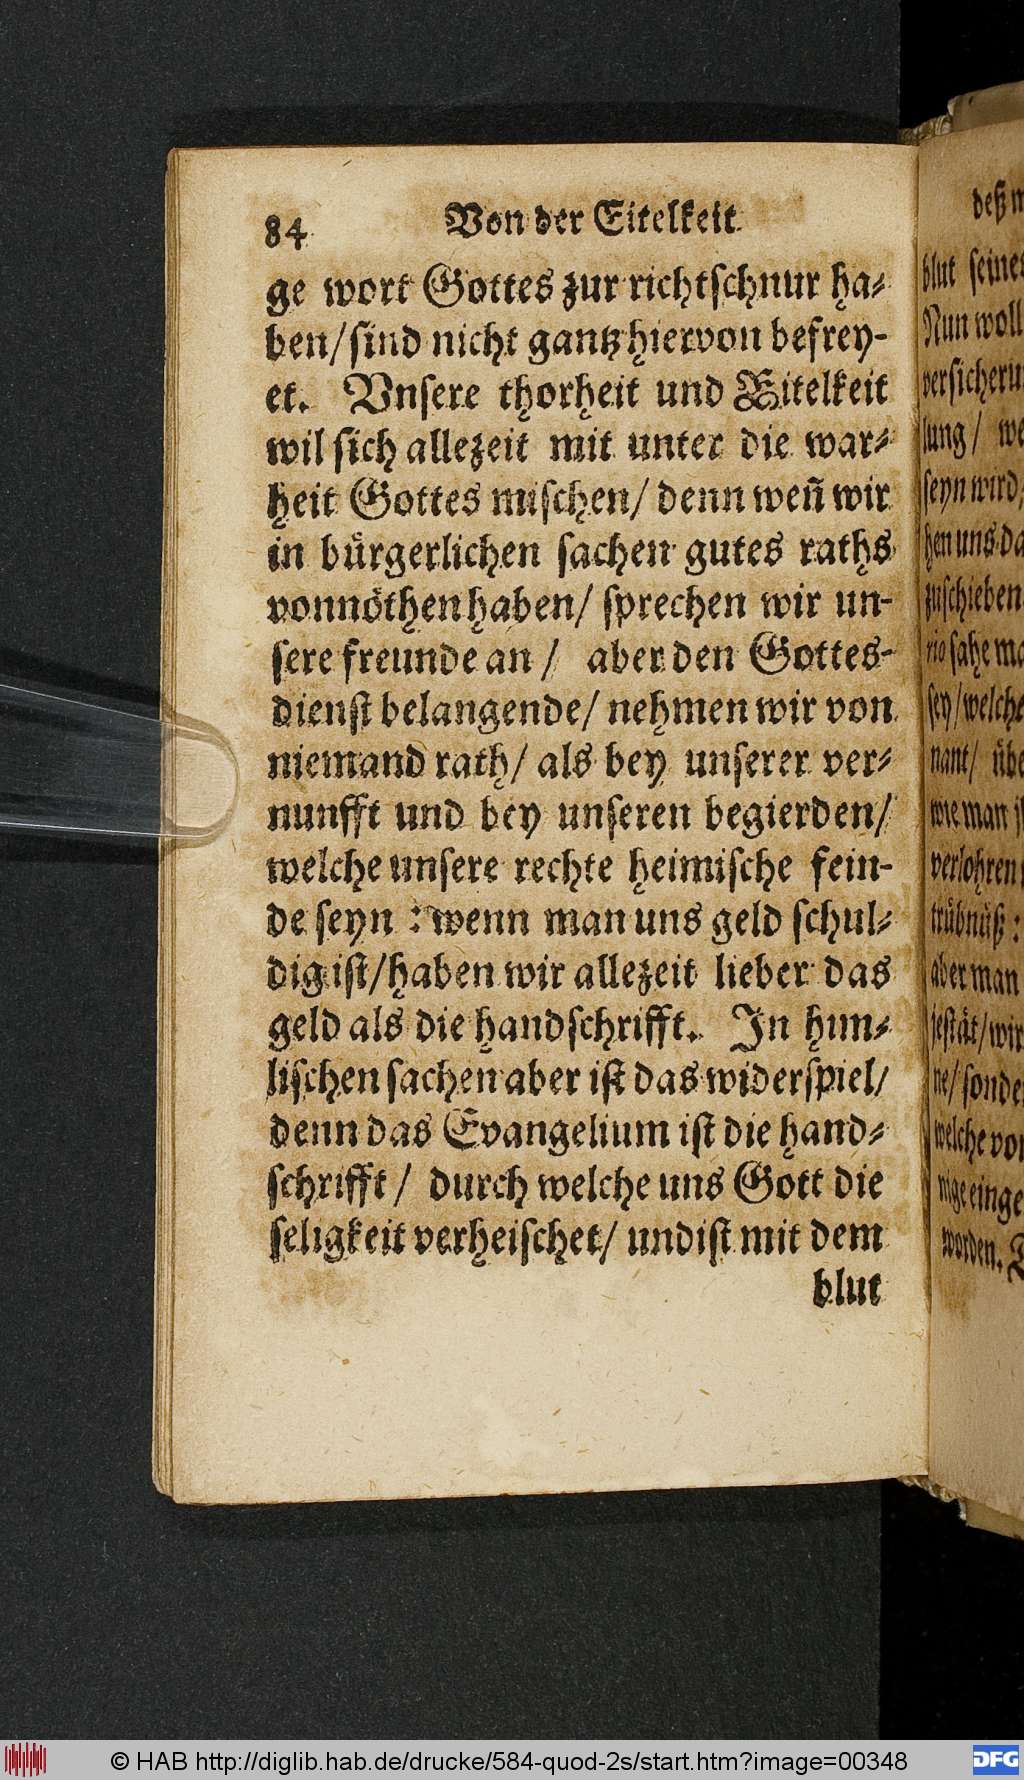 84 Von der Eitelkeit.
ge wort Gottes zur richtschnur ha-
ben/sind nicht gantz hiervon befrey-
et. Vnsere thorheit und Eitelkeit
wil sich allezeit mit unter die war-
heit Gottes mischen/ denn weñ wir
in bürgerlichen sachen gutes raths
vonnöthen haben/ sprechen wir un-
sere freunde an / aber den Gottes-
dienst belangende/ nehmen wir von
niemand rath/ als bey unserer ver-
nunfft und bey unseren begierden/
welche unsere rechte heimische fein-
de seyn : wenn man uns geld schul-
dig ist/haben wir allezeit lieber das
geld als die handschrifft. In him-
lischen sachen aber ist das widerspiel/
denn das Evangelium ist die hand-
schrifft / durch welche uns Gott die
seligkeit verheischet/ und ist mit dem
blut
deß
blut seines
Nun woll
versicheru
lung/ we
seyn wird,
hen uns da
zuschieben
rio sahe ma
sey/welche
nant/ übe
wie man
verlohren
trübnüß :
aber man
jestät/wir
ne/sonde
welche von
nige einge
worden.
© HAB http://diglib.hab.de/drucke/584-quod-2s/start.htm?image=00348
DFG